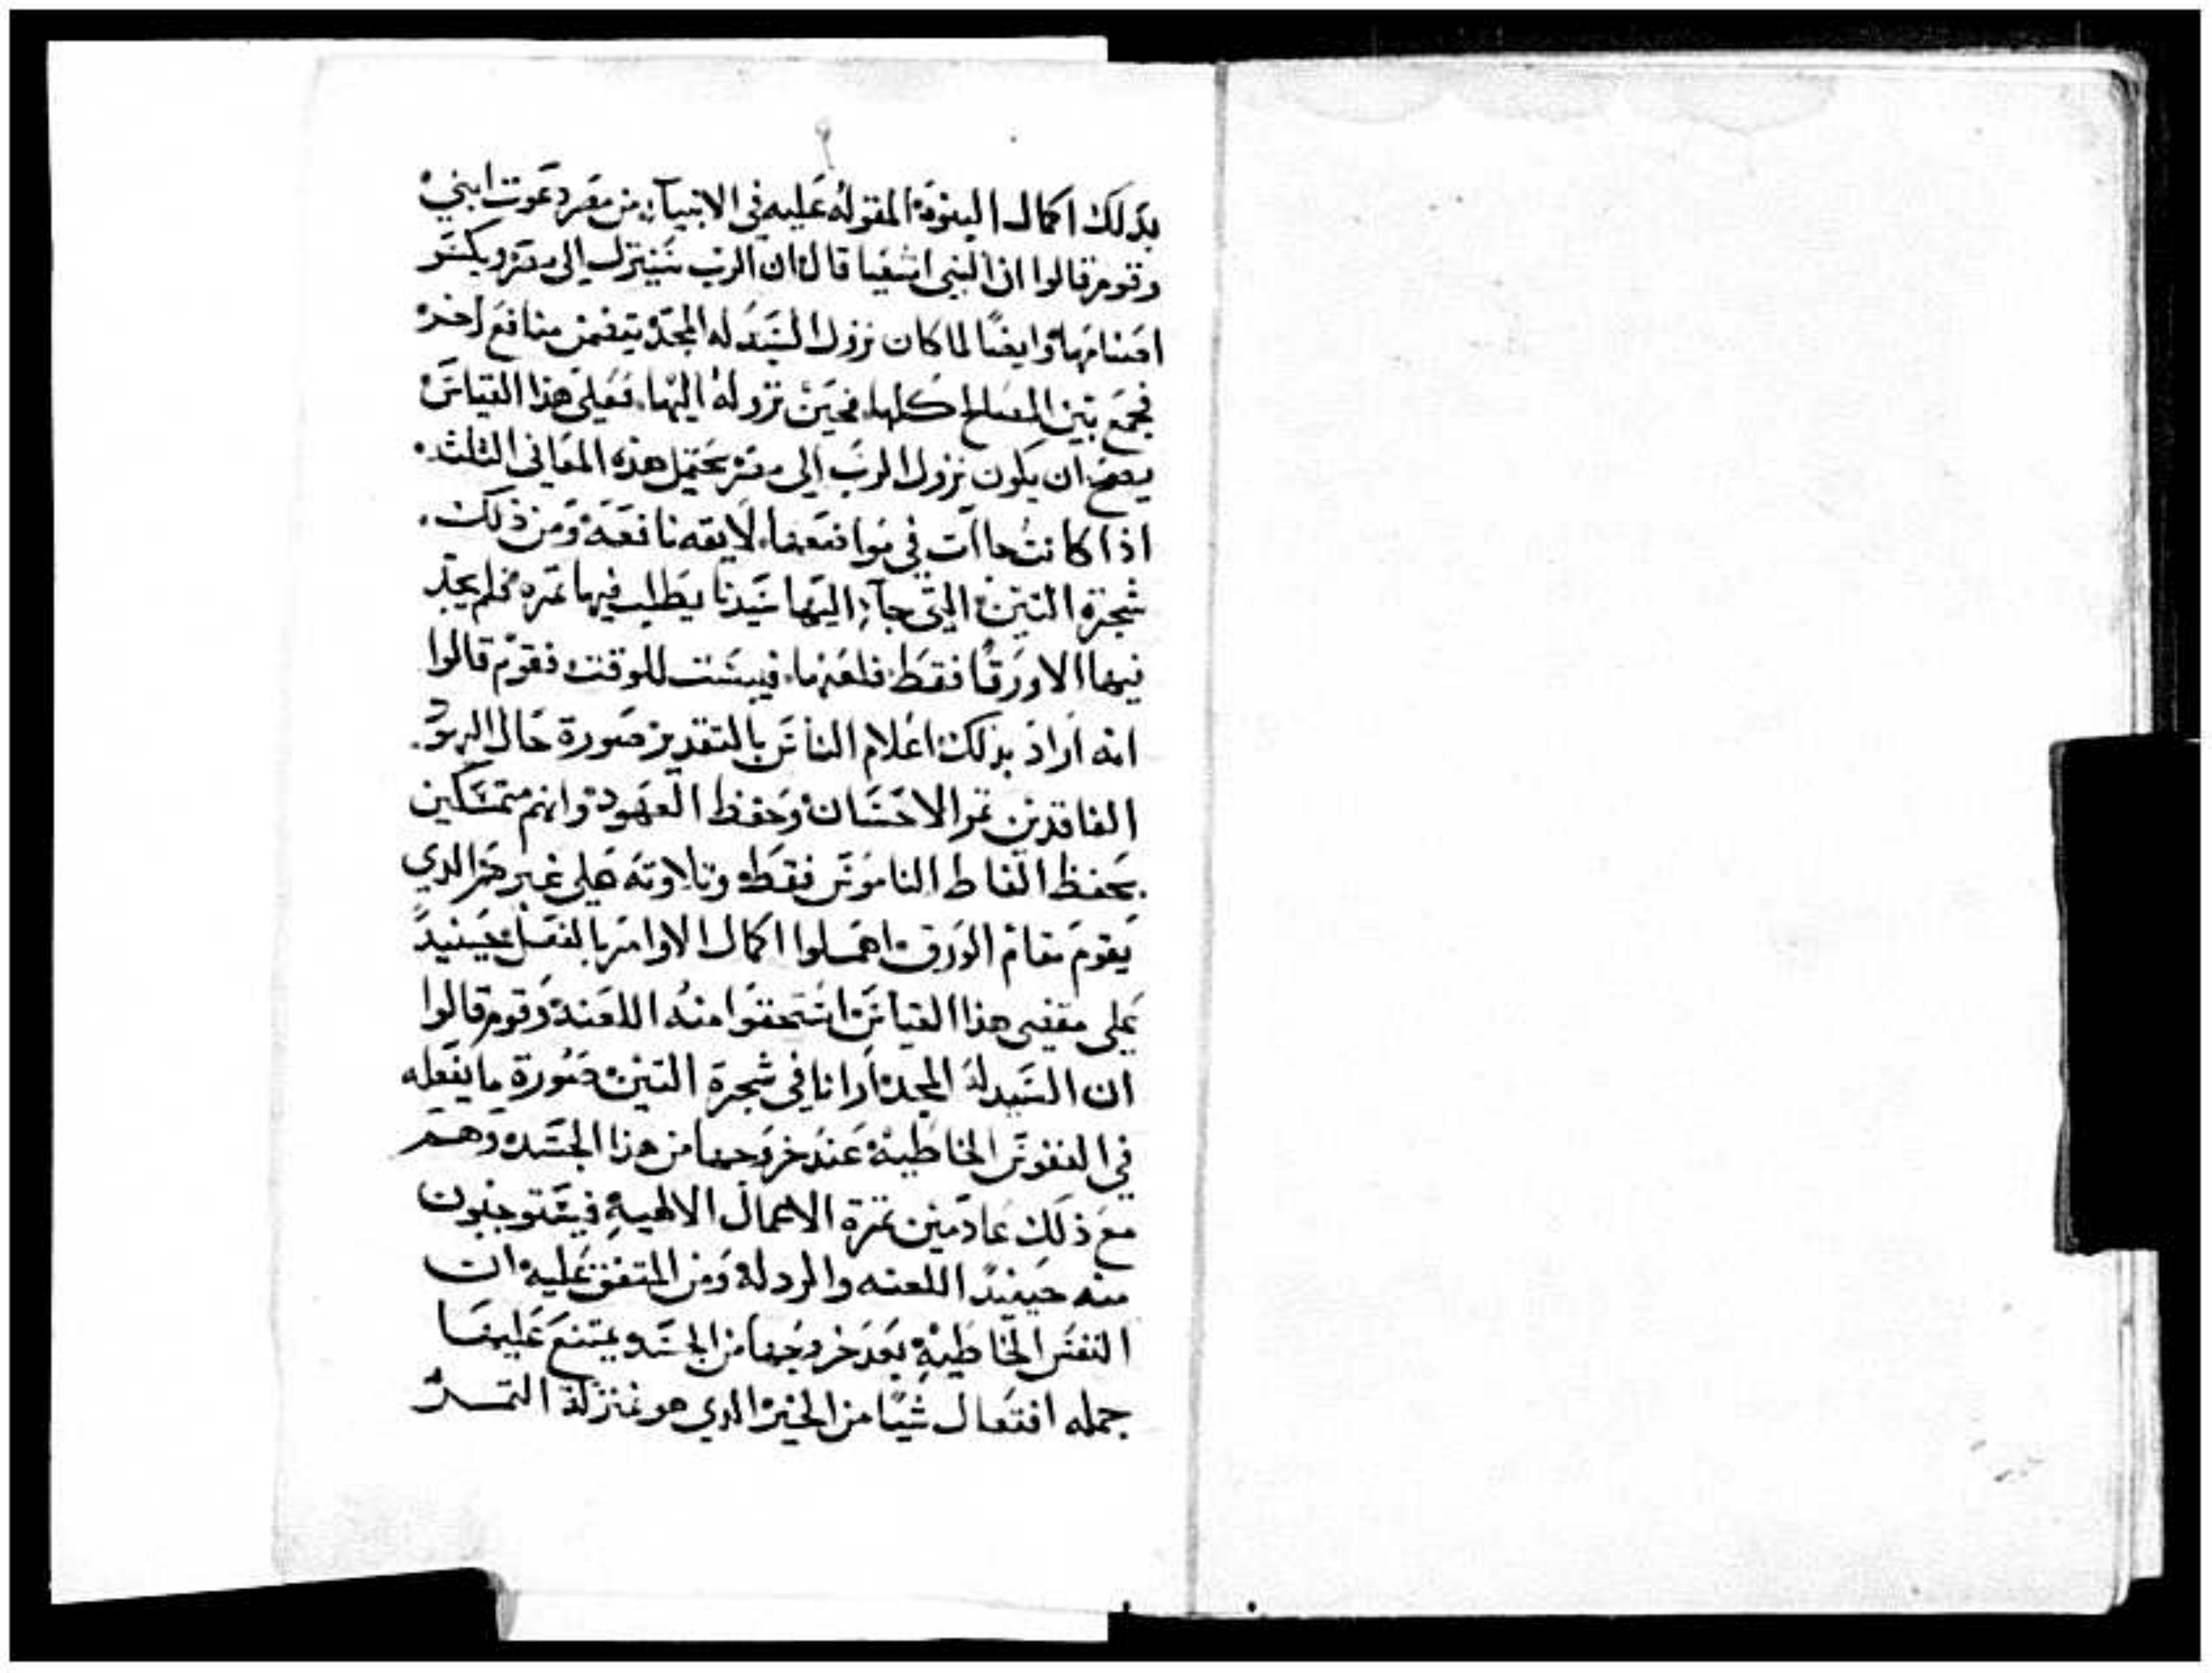 بذلك اكمال النبوة المقوله عليه في الانبياء من مصر دعوت ابني
وقوم قالوا ان النبي اشعيا قال ان الرب سينزل الى مصر ويكسر
اصنامها وايضًا لما كان نزول السيد له المجد يتضمن منافع اخر
فجمع بين المصالح كلها فحين نزوله اليها فعلى هذا القياس
يصح ان يكون نزول الرب الى مصر يحتمل هذه المعاني الثلثه
اذا كانت جاات في مواضعها لايقه نافعه ومن ذلك
شجرة التين التي جآء اليها سيدنا يطلب فيها ثمره فلم يجد
فيها الا ورقًا فقط فلعنها فيبست للوقت فقوم قالوا
انه اراد بذلك اعلام الناس بالتقدير صورة حال اليهود
الفاقدين ثمر الاحسان وحفظ العهود وانهم متمسكين
بحفظ الفاظ الناموس فقط وتلاوته على غيرهم الدي
يقوم مقام الورق اهملوا اكمال الاوامر بالفعل فحينيدً
على مقتضى هذا القياس استحقوا منه اللعنه وقوم قالوا
ان السيد له المجد ارانا في شجرة التين صورة ما يفعله
في النفوس الخاطية عند خروجها من هذا الجسد وهم
مع ذلك عادمين ثمرة الاعمال الالهية فيستوجبون
منه حينيدً اللعنه والردله ومن المتفق عليه ان
النفس الخاطية بعد خروجها من الجسد ويمتنع عليها
جمله افتعال شيًا من الخير الدي هو بمنزلة الثمر